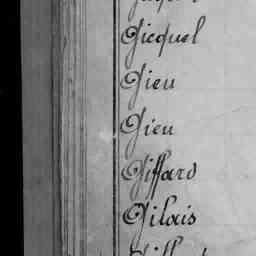 Gicquel
Gieu
Gieu
Giffard
Gilais